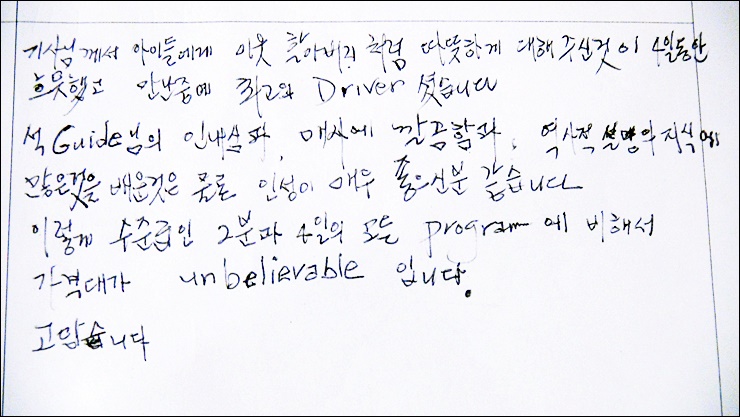 기사님께서 아이들에게 이웃 할아버지 처럼 따뜻하게 대해 주신것이 4일동안
흐뭇했고 만난중에 최고의 Driver 셨습니다
석 Guide님의 인내심과, 매사에 깔끔함과, 역사적 설명의 지식에
많은것을 배운것은 물론 인성이 매우 좋으신분 같습니다
이렇게 수준급인 2분과 4일의 모든 program 에 비해서
가격대가 unbelievable 입니다.
고맙습니다